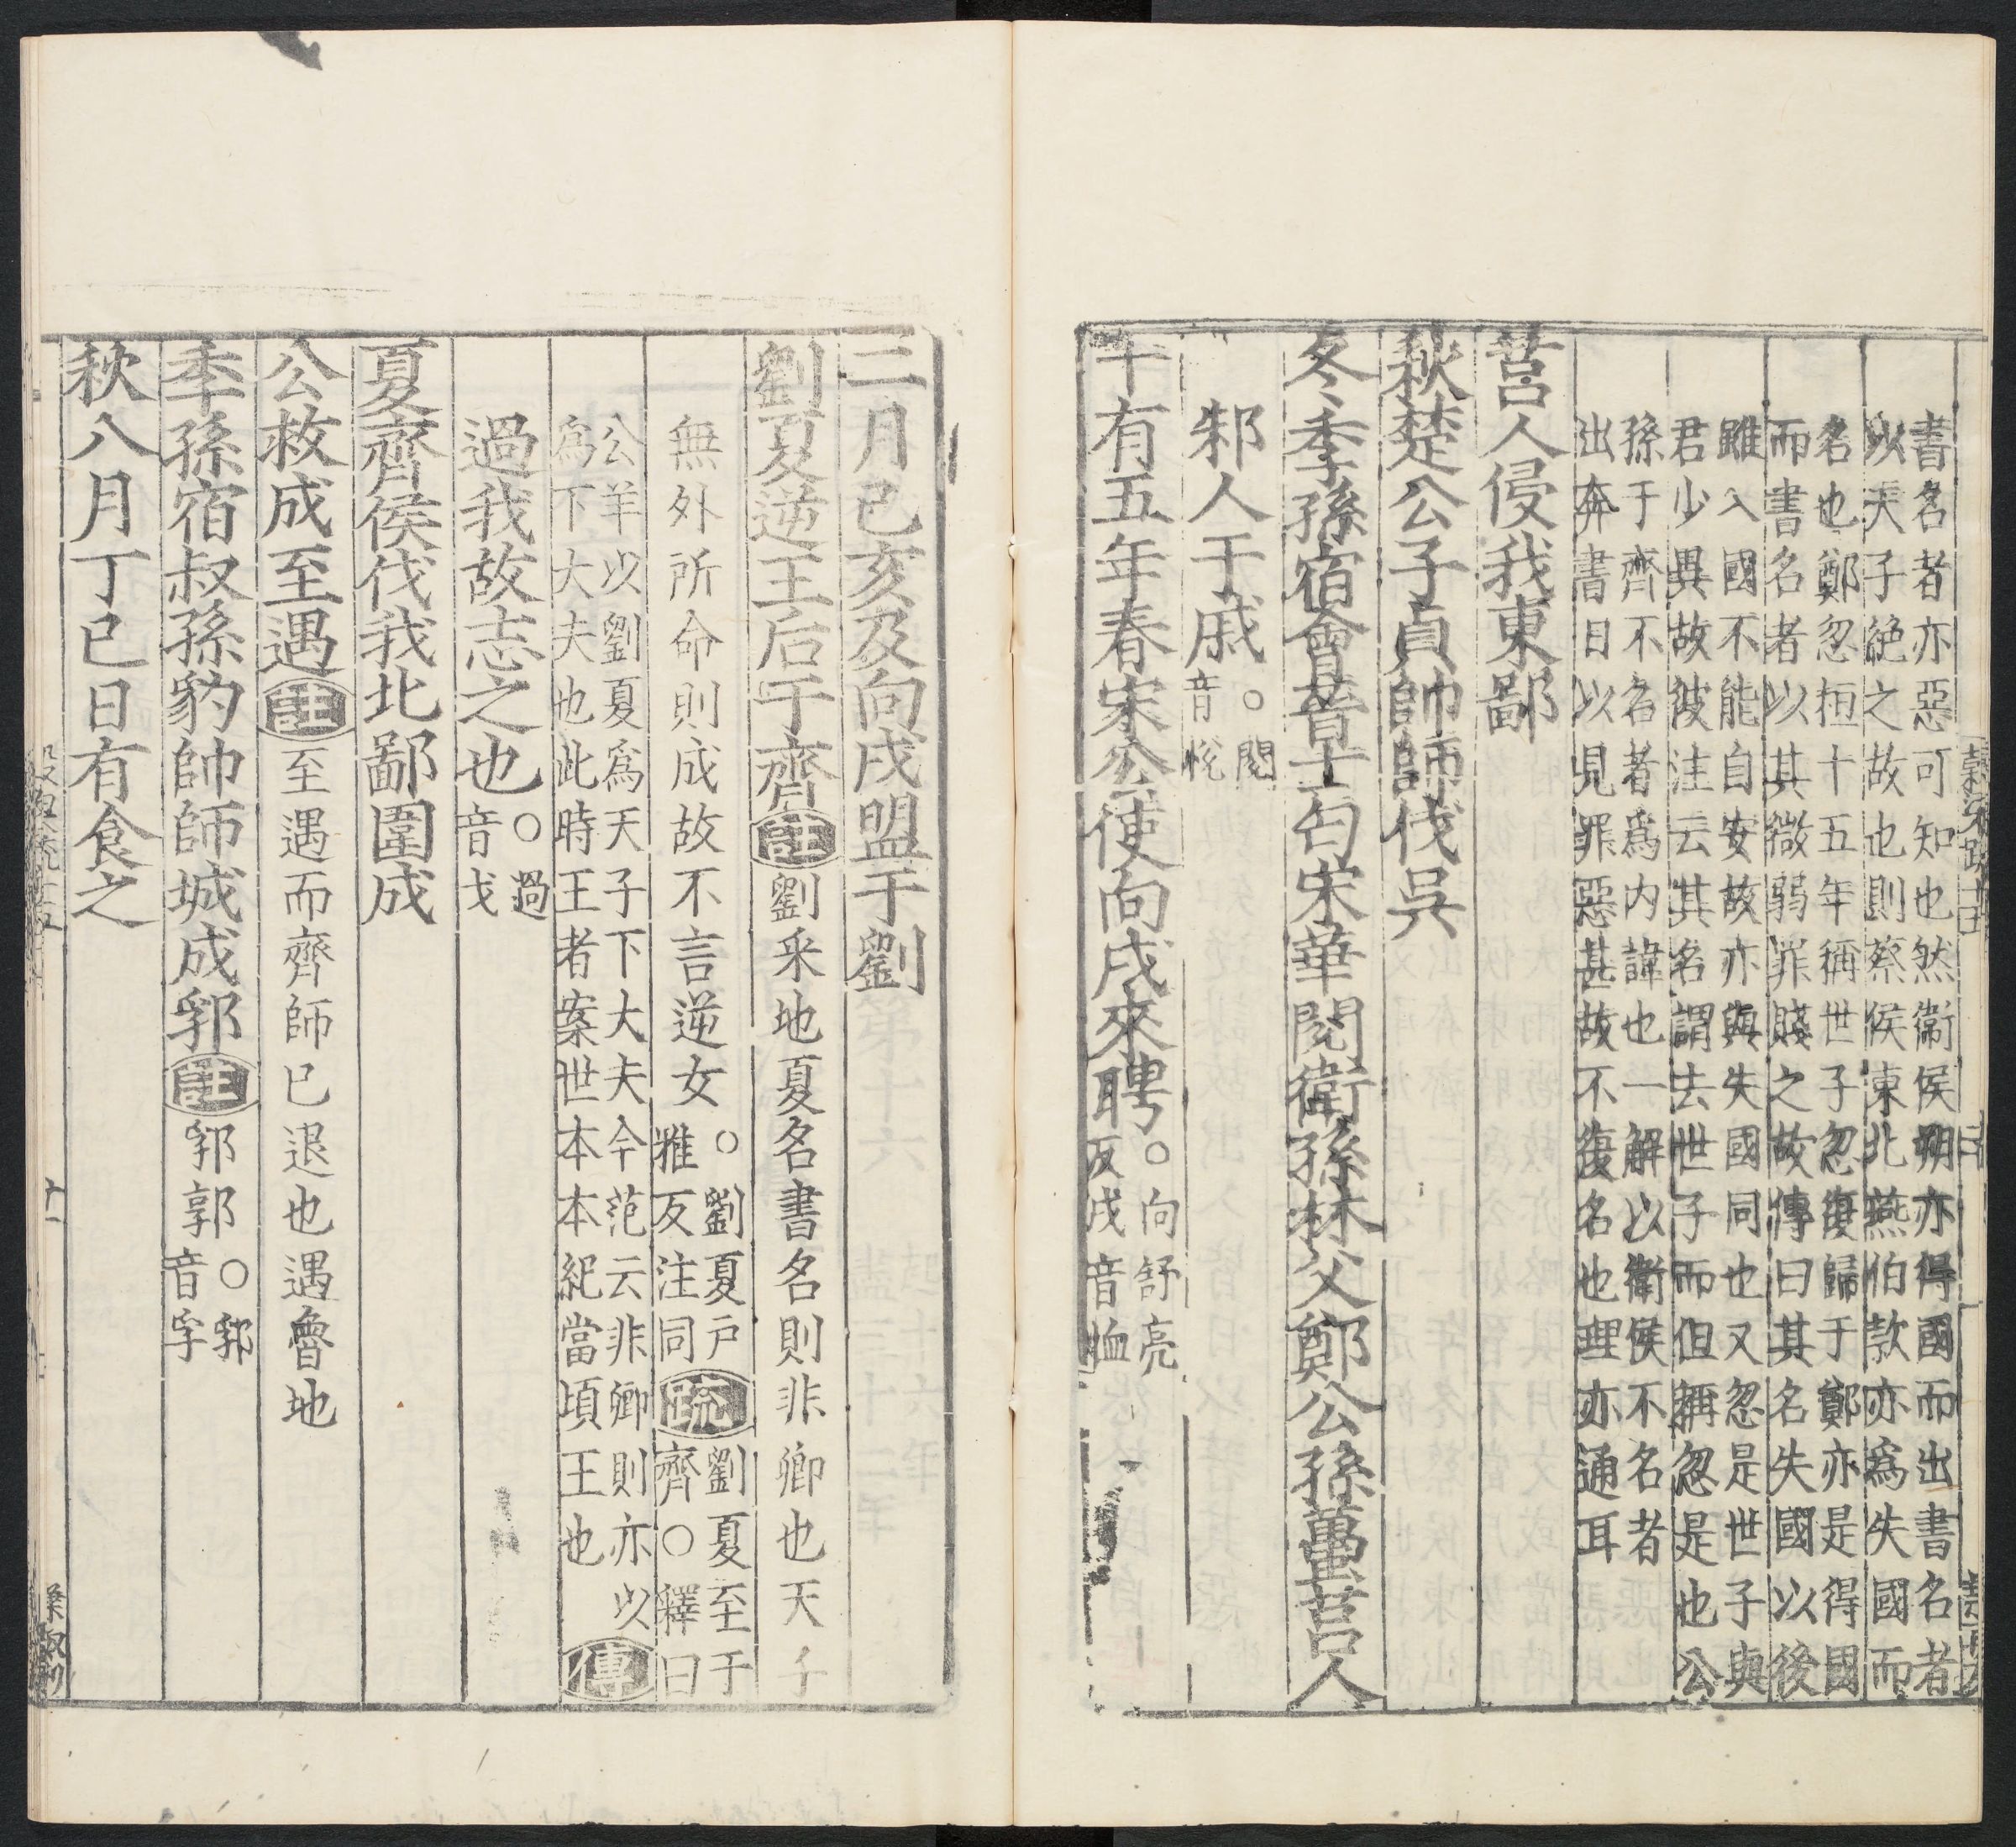 書名者亦惡可知也然衞侯朔亦得國而出書名者
以天子絶之故也則蔡侯東北燕伯款亦爲失國而
名也鄭忽桓十五年稱世子忽復歸于鄭亦是得國
而書名者以其微弱罪賤之故傳曰其名失國以後
雖入國不能自安故亦與失國同也又忽是世子與
君少異故彼注云其名謂去世子而但稱忽是也公
孫于齊不名者爲内諱也一解以衞侯不名者
出奔書日以見罪惡甚故不復名也理亦通耳
莒人侵我東鄙
秋楚公子貞帥師伐吳
冬季孫宿會晉士匄宋華閱衞孫林父鄭公孫蠆莒人
邾人于戚
○閱
音悅
十有五年春宋公使向戌來聘
○向舒亮
反戌音恤
二月己亥及向戌盟于劉
劉夏逆王后于齊
註
劉采地夏名書名則非卿也天子
無外所命則成故不言逆女
○劉夏戸
雅反注同
疏
劉夏至于
齊○釋曰
公羊以劉夏爲天子下大夫今范云非卿則亦以
爲下大夫也此時王者案世本本紀當頃王也
傳
過我故志之也
○過
音戈
夏齊侯伐我北鄙圍成
公救成至遇
註
至遇而齊師已退也遇魯地
季孫宿叔孫豹帥師城成郛
註
郛郭
○郛
音孚
秋八月丁巳日有食之
十一